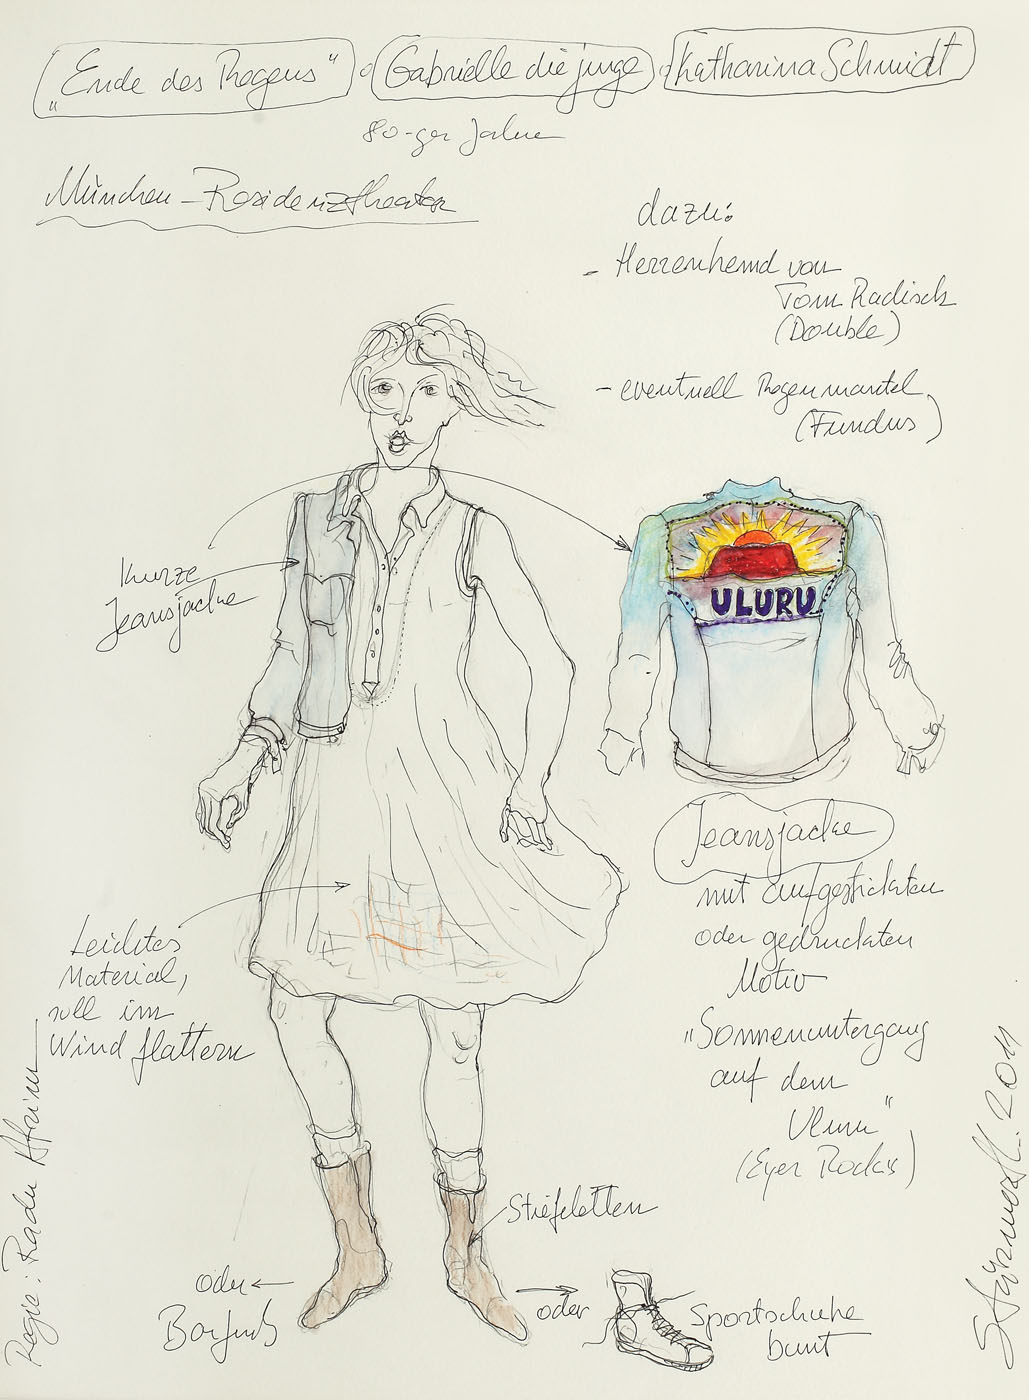 „Ende des Regens“ Gabrielle die junge Katharina Schmidt
80-ger Jahre
München - Residenztheater
dazu:
- Herrenhemd von
Tom Radisch
(Double)
- eventuell Regenmantel
(Fundus)
kurze
Jeansjacke
ULURU
Jeansjacke
mit aufgestickten
oder gedruckten
Motiv
„Sonnenuntergang
auf dem
Uluru“
(Eyer Rocks)
Leichtes
Material,
soll im
Wind flattern
Stiefeletten
oder
Barfuß
oder
Sportschuhe
bunt
Regie: Radu Afrim
2011